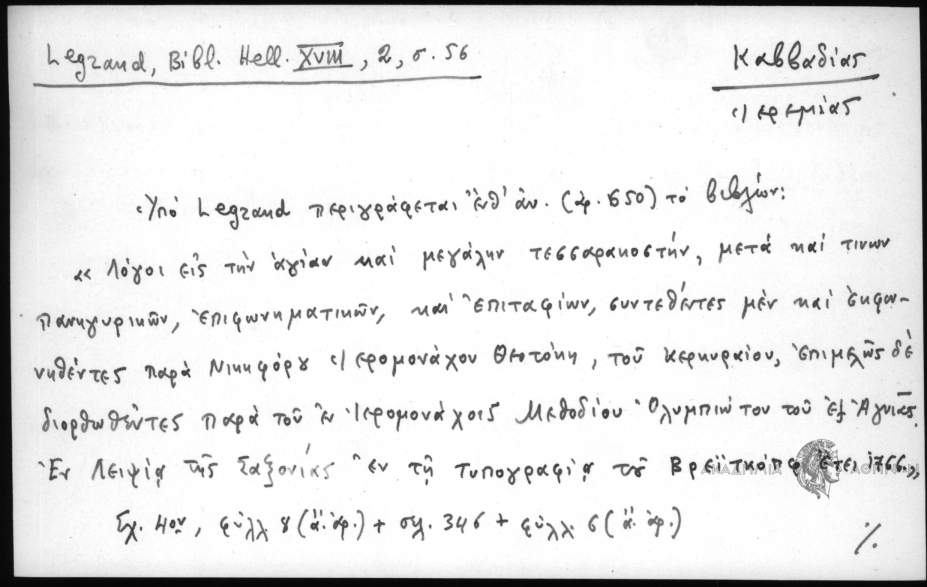 Legrand, Bibl. Hell. XVIII, 2, σ. 56
Καββαδίας
Ἱερεμίας
Ὑπό Legrand περιγράφεται ἐνθ' ἀν. (ἀρ. 650) τό βιβλίον:
« Λόγοι εἰς τήν ἁγίαν καί μεγάλην τεσσαρακοστήν, μετά καί τινων
πανηγυρικῶν, Ἐπιφωνηματικῶν, καί Ἐπιταφίων, συντεθέντες μέν καί ἐκφω-
νηθέντες παρά Νικηφόρου Ἱερομονάχου Θεοτόκη, τοῦ Κερκυραίου, ἐπιμελῶς δέ
διορθωθέντες παρά τοῦ ἐν Ἱερομονάχοις Μεθοδίου Ὀλυμπιώτου τοῦ ἐξ Ἀγυιᾶς.
Ἐν Λειψίᾳ τῆς Σαξονίας Ἐν τῇ τυπογραφίᾳ τοῦ Βρεϊτκόπφ Ἔτει 1766.»,
Σχ. 4ον, φύλλ 8 (ἄ. ἀρ.) + σελ. 346 + φύλλ. 6 (ἄ. ἀρ.)
./.
ΑΚΑΔΗΜΙΑ ΑΘΗΝΩΝ